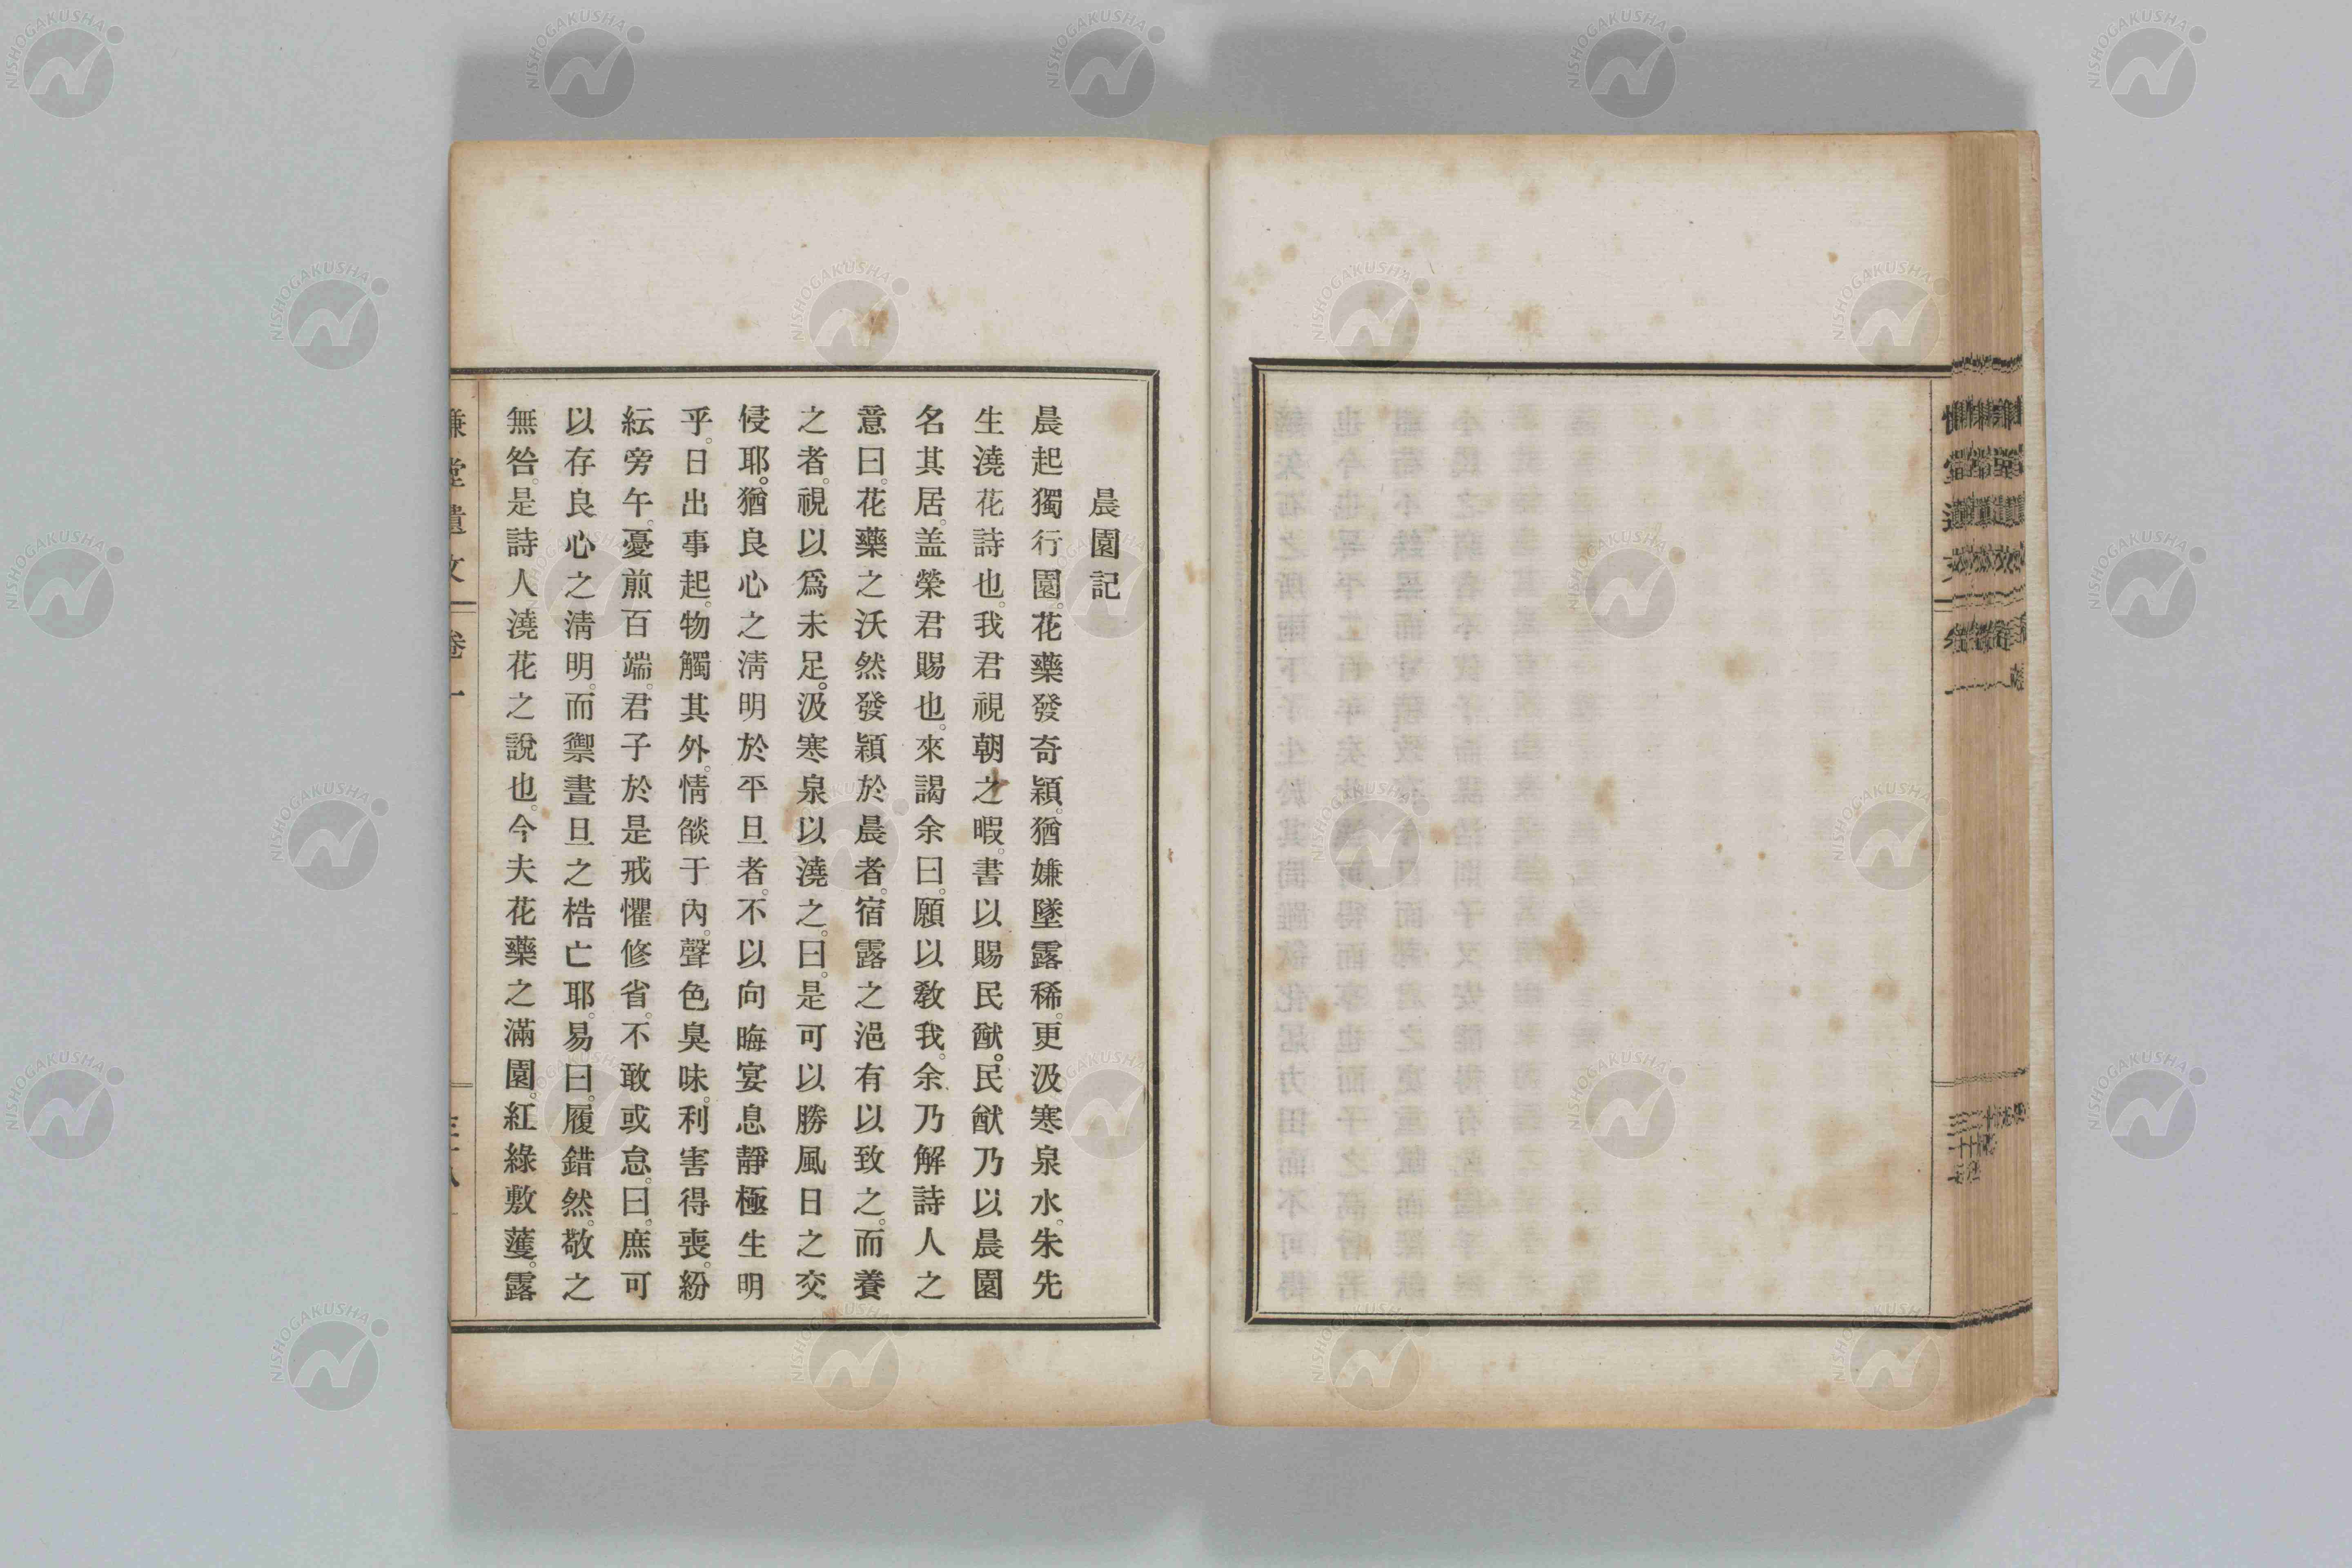 晨園記
晨起獨行園。花藥發奇穎。猶嫌墜露稀。更汲寒泉水。朱先
生澆花詩也。我君視朝之暇。書以賜民猷。民猷乃以晨園
名其居。盖榮君賜也。來謁余曰。願以教我。余乃解詩人之
意曰。花藥之沃然發穎於晨者。宿露之浥有以致之。而養
之者。視以爲未足。汲寒泉以澆之。曰。是可以勝風日之交
侵耶。猶良心之淸明於平旦者。不以向晦宴息靜極生明
乎。日出事起。物觸其外。情燄于內。聲色臭味。利害得喪。紛
紜旁午。憂煎百端。君子於是戒懼修省。不敢或怠。曰。庶可
以存良心之淸明。而禦晝旦之梏亡耶。易曰。履錯然。敬之
無咎。是詩人澆花之說也。今夫花藥之滿園。紅綠敷蘐。露
NISHOGAKUSHA